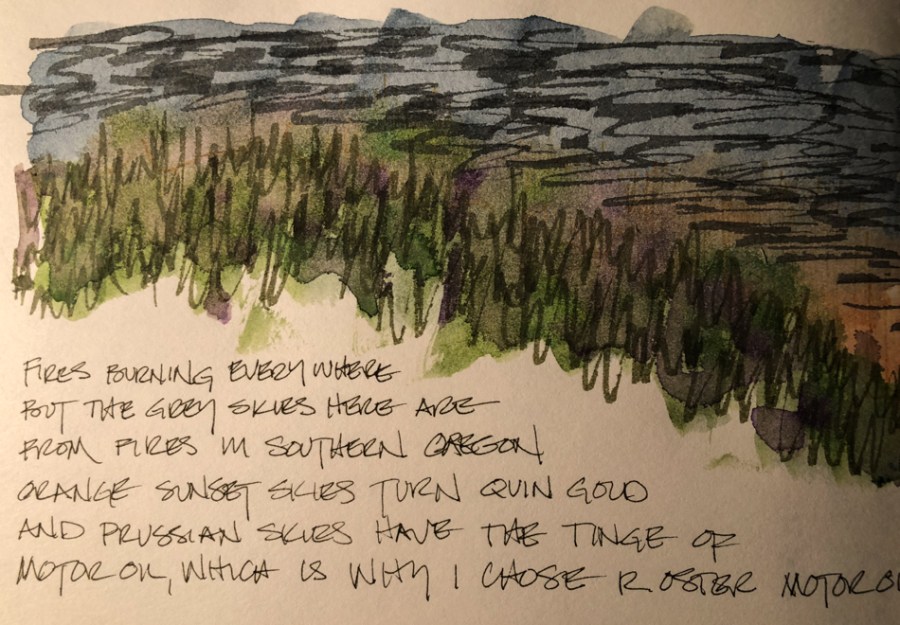 FIRES BURNING EVERYWHERE
BUT THE GREY SKIES HERE ARE
FROM FIRES IN SOUTHERN OREGON,
ORANGE SUNSET SKIES TURN QUIN GOLD
AND PRUSSIAN SKIES HAVE THE TINGE OF
MOTOR OIL, WHICH IS WHY I CHOSE R OSTER MOTOR